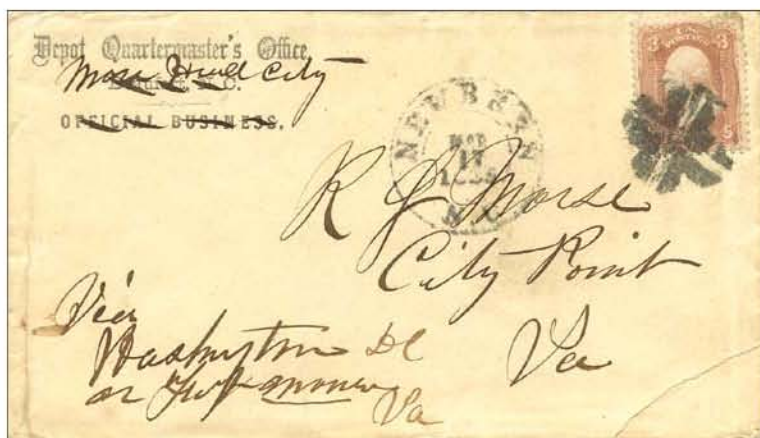 Depot Quartermaster's Office,
More Head City
N.C.
OFFICIAL BUSINESS.
NEW BERN
MAR
17
N.C.
3
R J Morse
City Point
Va
Via
Washington DC
or Monroe
Va